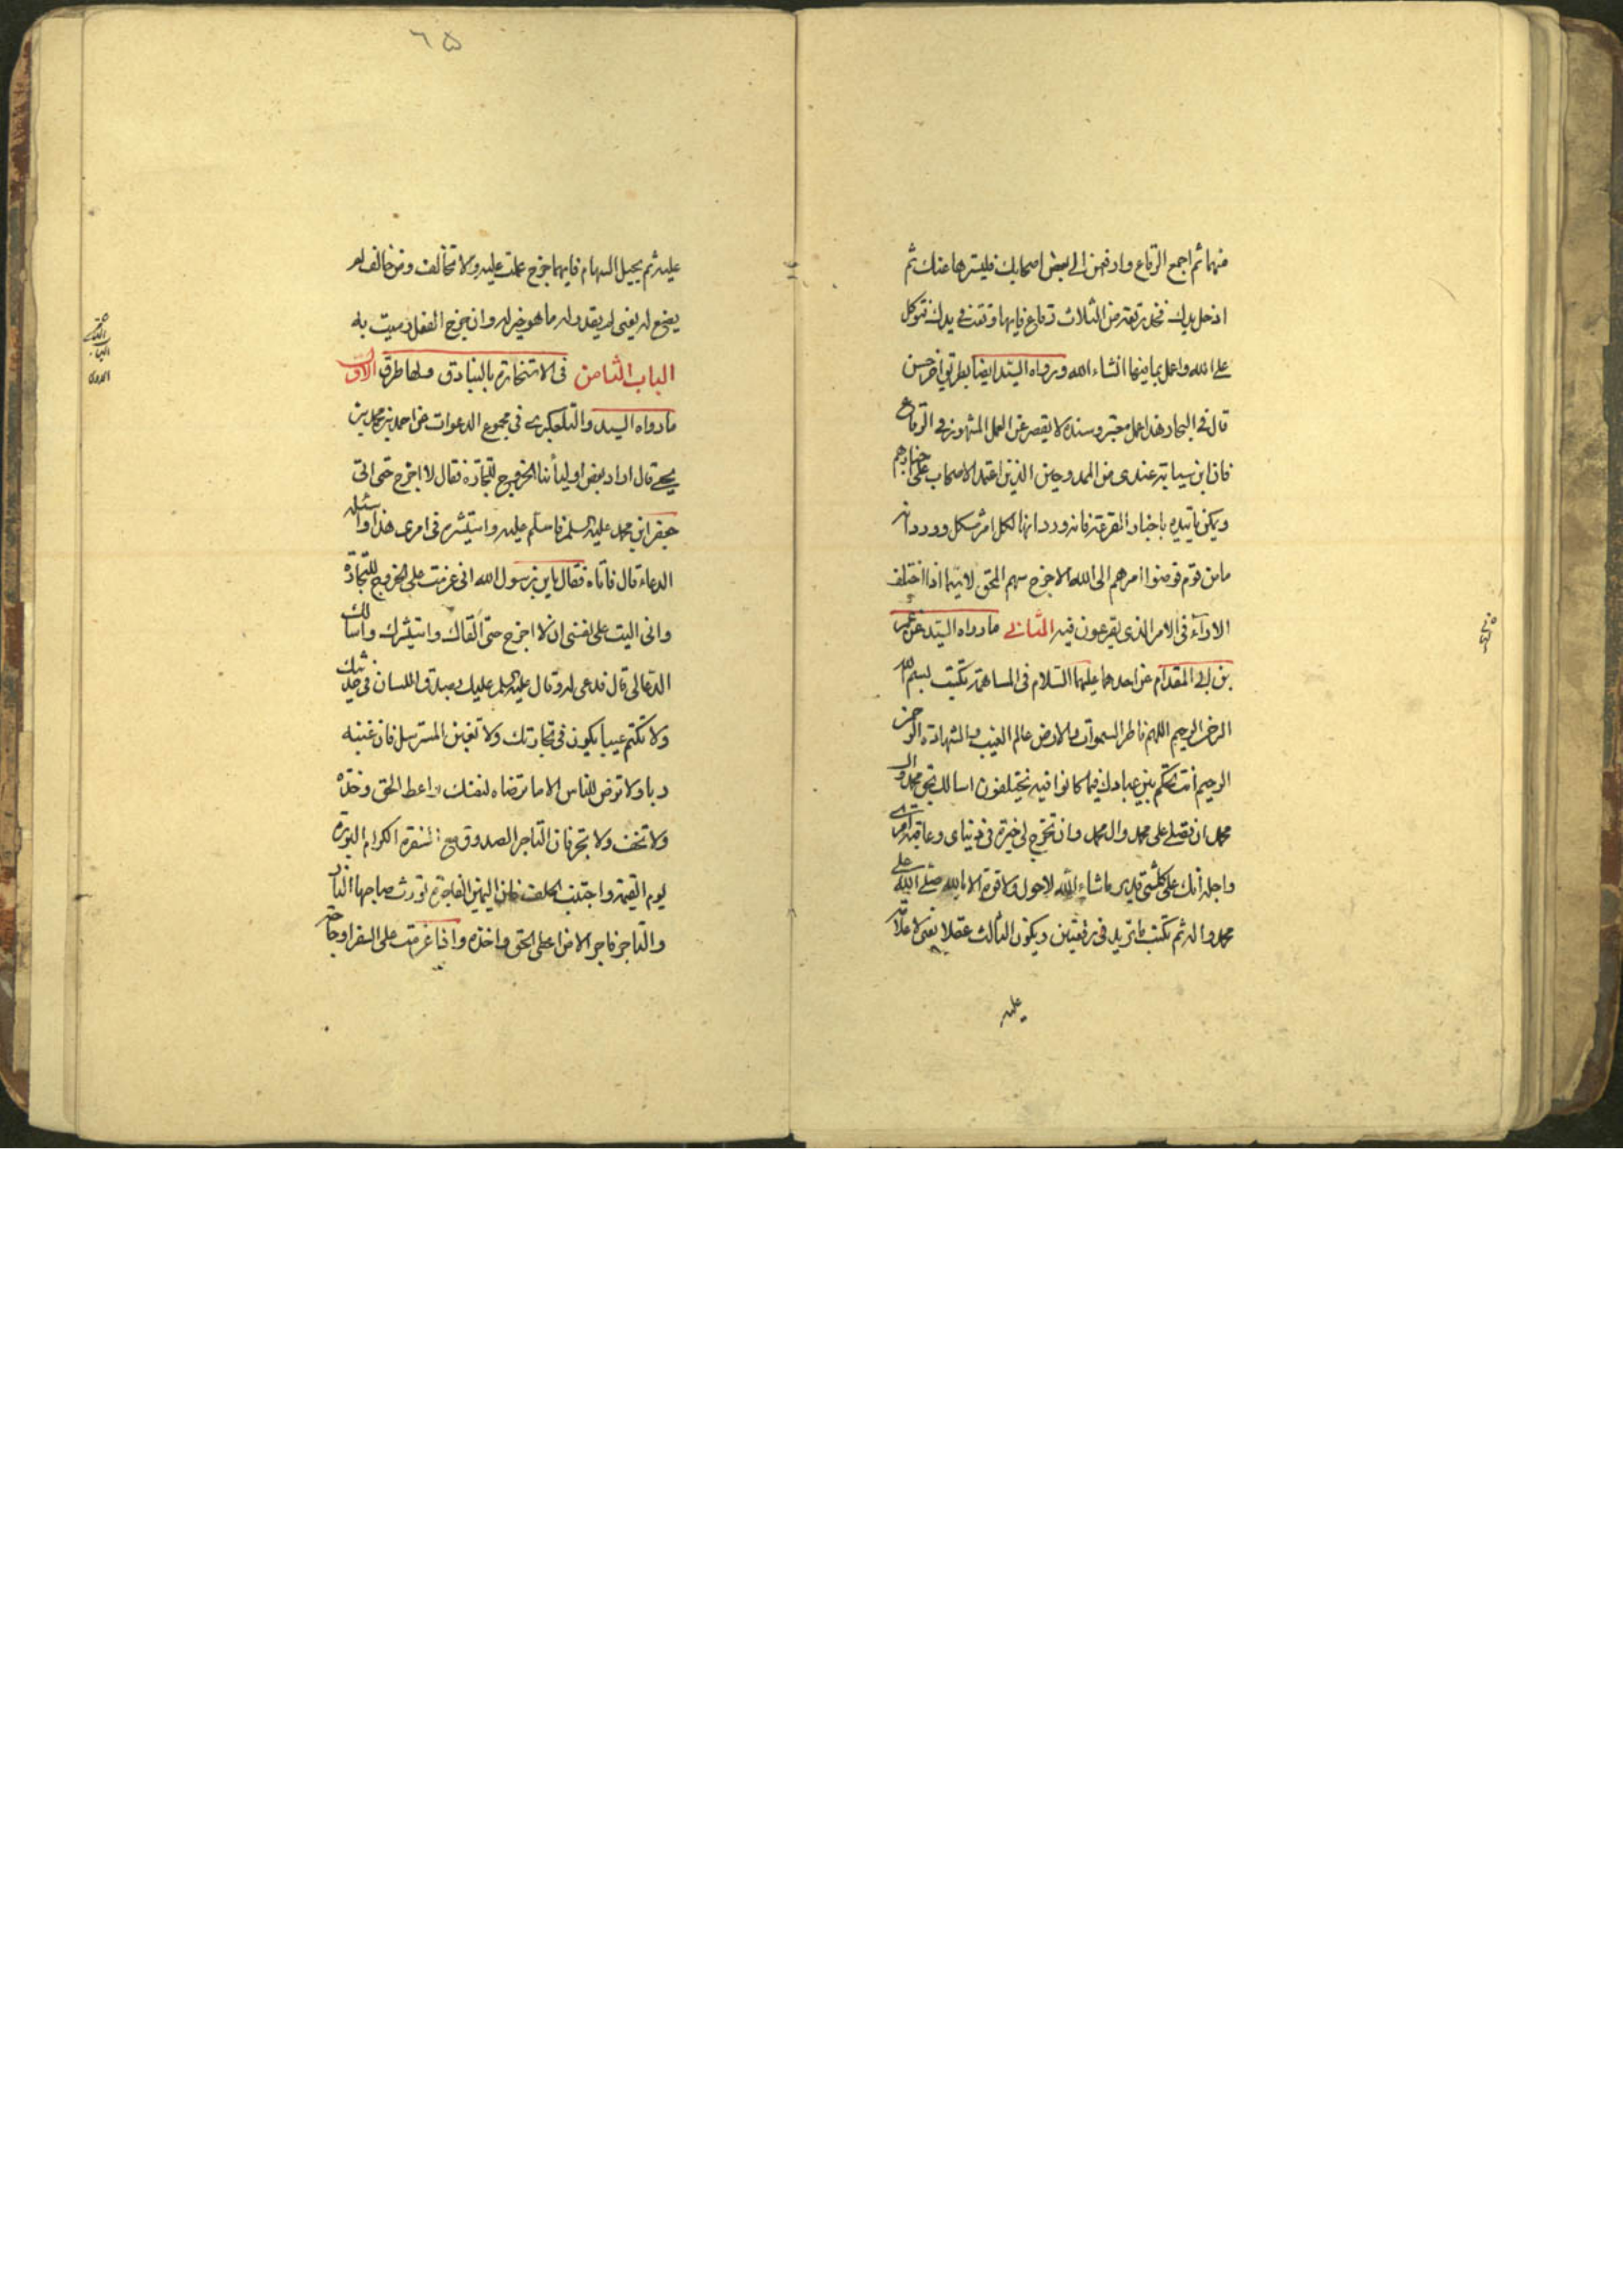 منهما ثم اجمع الرقاع وادفعهن الى بعض اصحابك فليسترها عنك ثم
ادخل يدك فخذ رقعة من الثلاث رقاع فايها وقعت في يدك فتوكل
على الله واعمل بما فيها انشاء الله ورواه السيد ايضا بطريق اخر حسن
قال في البحار هذا عمل معتبر وسنده لا يقصر عن العمل المشهور في الرقاع
فان ابن سيابة عندى من الممدوحين الذين اعتمد الاصحاب على اخبارهم
ويمكن تاييده باخبار القرعة فانه ورد انها لكل امر مشكل وورد انه
ما من قوم فوضوا امرهم الى الله الا خرج سهم المحق لا سيما اذا اختلف
الاراء في الامر الذى يقرعون فيه الثانى ما رواه السيد عن عمرو
بن ابى المقدام عن احدهما عليهما السلام في المساهمة تكتب بسم الله
الرحمن الرحيم اللهم فاطر السموات والارض عالم الغيب والشهادة الرحمن
الرحيم انت تحكم بين عبادك فيما كانوا فيه يختلفون اسالك بحق محمد وال
محمد ان تصلى على محمد وال محمد وان تخرج لى خيرة في دنياى وعاقبة امرى
واجله انك على كلشئ قدير ما شاء الله لا حول ولا قوة الا بالله صلى الله على
محمد واله ثم تكتب ما تريد في رقعتين ويكون الثالث عقلا يعنى لا علامة
عليه
٦٥
عليه ثم يجيل السهام فايهما خرج عملت عليه ولا تخالف ومن خالف لم
يصنع له يعنى لم يقدر له ما هو خير له وان خرج الغفل رميت به
الباب الثامن في الاستخارة بالبنادق ولها طرق الاول
ما رواه السيد والتلعكبرى في مجموع الدعوات عن احمد بن محمد بن
يحيى قال اراد بعض اوليائنا الخروج للتجارة فقال لا اخرج حتى اتى
جعفر ابن محمد عليه السلم فاسلم عليه واستشيره في امرى هذا واسئله
الدعاء قال فاتاه فقال يا بن رسول الله انى عزمت على الخروج للتجارة
وانى اليت على نفسى ان لا اخرج حتى القاك واستشيرك واسالك
الدعا لى قال فدعى له وقال عليه السلم عليك بصدق اللسان في حديثك
ولا تكتم عيبا يكون في تجارتك ولا تغبن المسترسل فان غبنه
ربا ولا ترض للناس الا ما ترضاه لنفسك واعط الحق وخذه
ولا تخف ولا تجر فان التاجر الصدوق مع السفرة الكرام البررة
يوم القيمة واجتنب الحلف فان اليمين الفاجرة تورث صاحبها النار
والتاجر فاجر الا من اعطى الحق واخذه واذا عزمت على السفر او حاجة